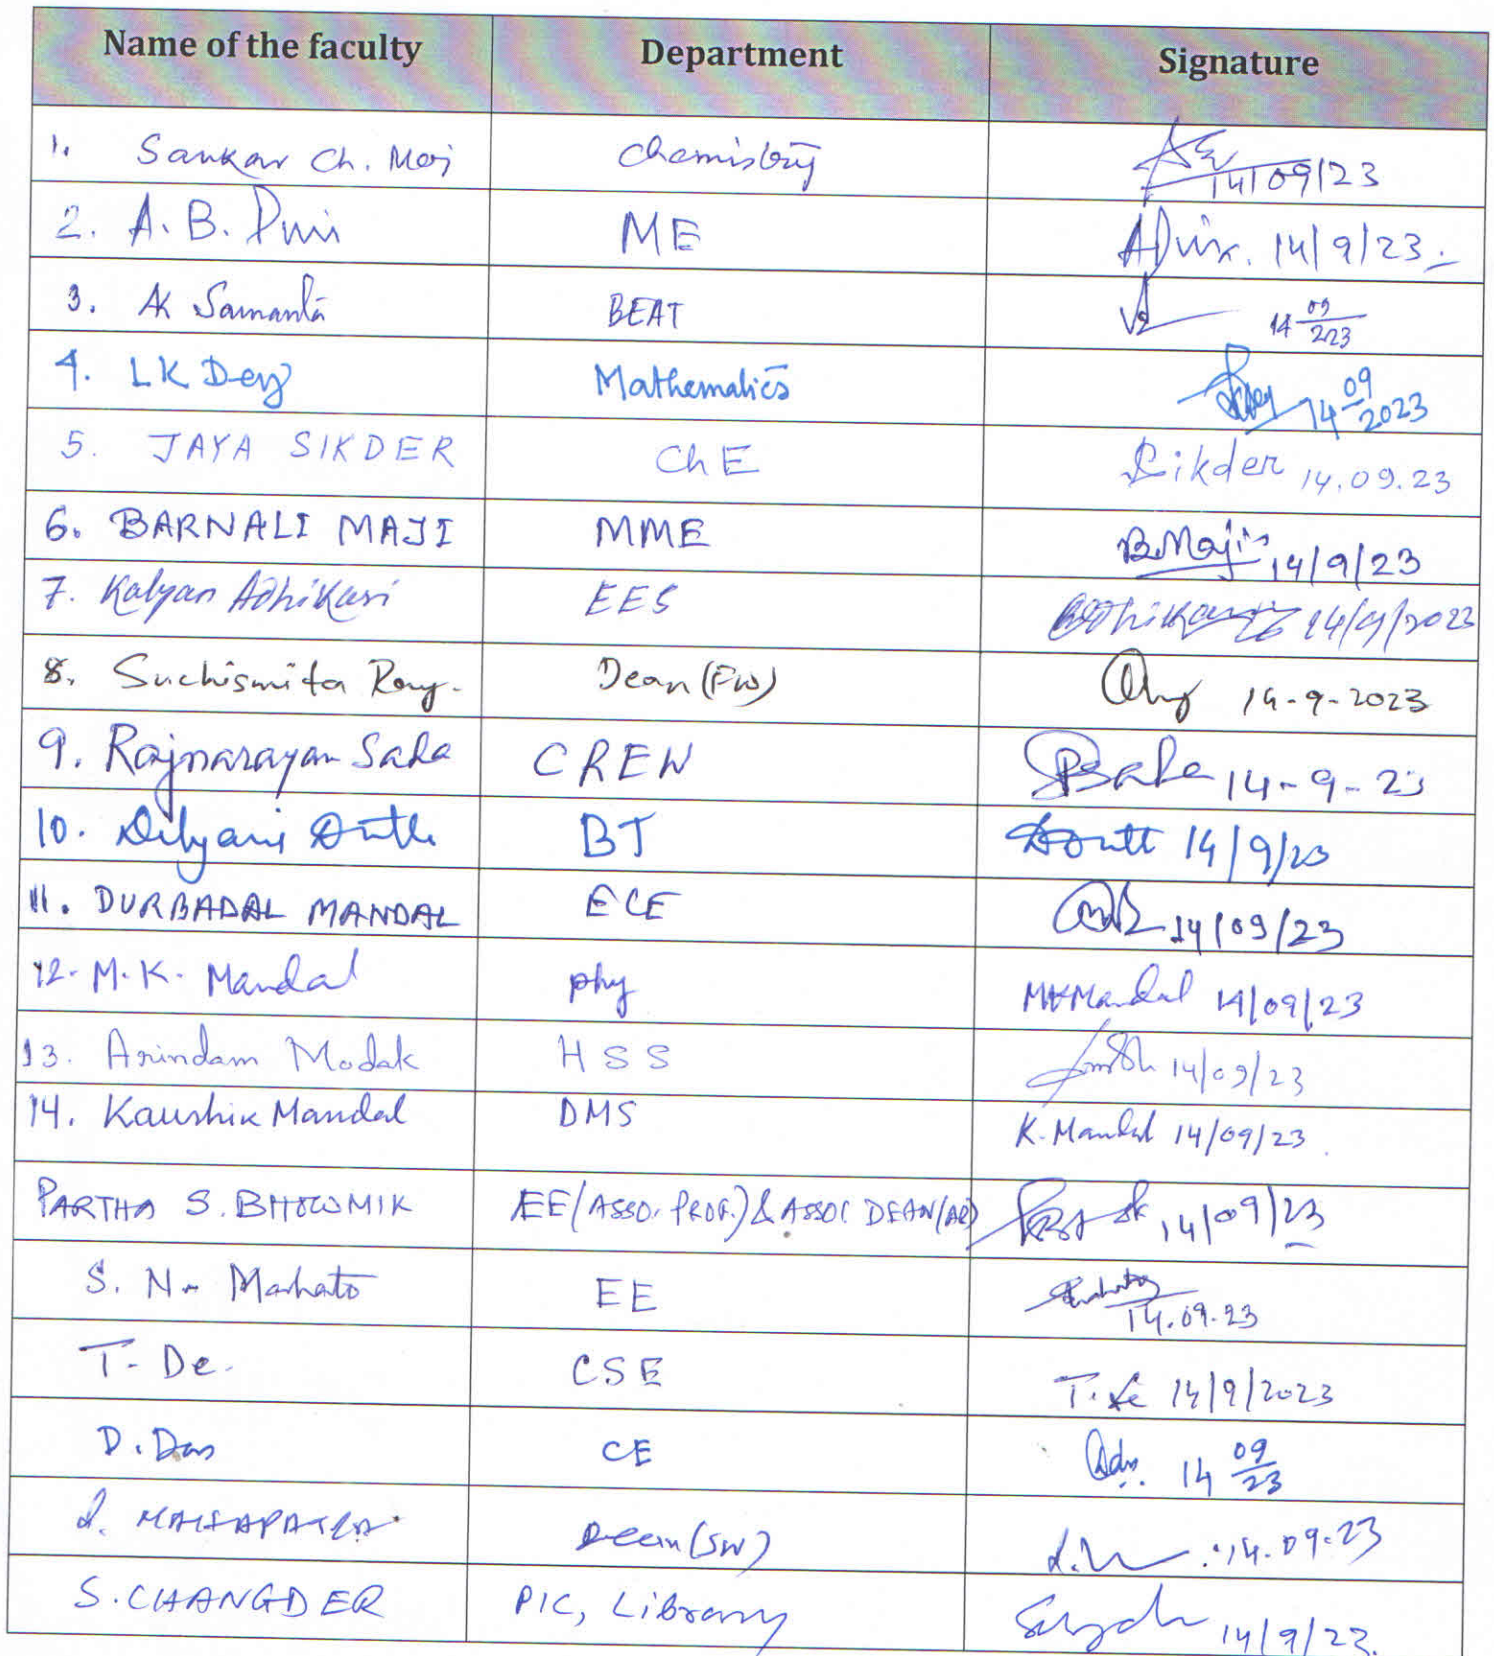 Name of the faculty Department Signature
1. Sankar Ch. Moi Chemistry 14/09/23
2. A. B. Puri ME APuri. 14/9/23.
3. AK Samanta BEAT 14 09/223
4. LK Dey Mathematics Dey 14 09/2023
5. JAYA SIKDER ChE Sikder 14.09.23
6. BARNALI MAJI MME B.Maji 14/9/23
7. Kalyan Adhikari EES Adhikari 14/9/2023
8. Suchismita Roy. Dean (FW) 14-9-2023
9. Rajnarayan Saha CREW Saha 14-9-23
10. Debjani Dutta BT Dutt 14/9/23
11. DURBADAL MANDAL ECE 14/09/23
12. M.K. Mandal phy MKMandal 14/09/23
13. Arindam Modak HSS 14/09/23
14. Kaushik Mandal DMS K. Mandal 14/09/23
PARTHA S. BHOWMIK EE (ASSO. PROF.) & ASSOC DEAN (AR) 14/09/23
S. N. Mahato EE 14.09.23
T. De. CSE T. De 14/9/2023
D. Das CE Das. 14 09/23
MAHAPATRA Dean (SW) 14.09.23
S. CHANGDER PIC, Library 14/9/23.